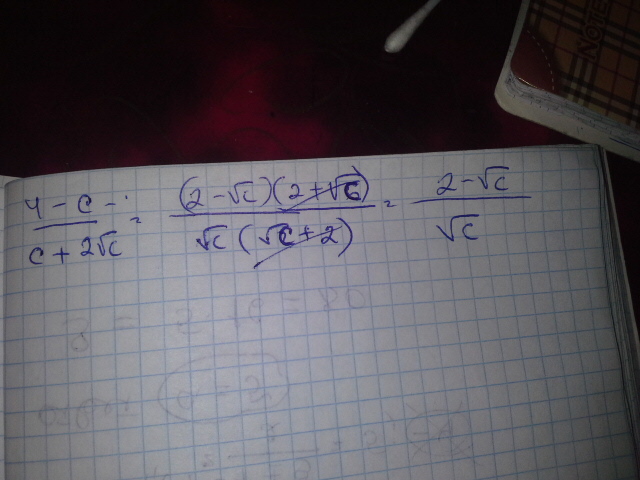 NOTE
(4 - c)/(c + 2√c) = ((2 - √c)(2 + √c))/(√c(√c + 2)) = (2 - √c)/√c